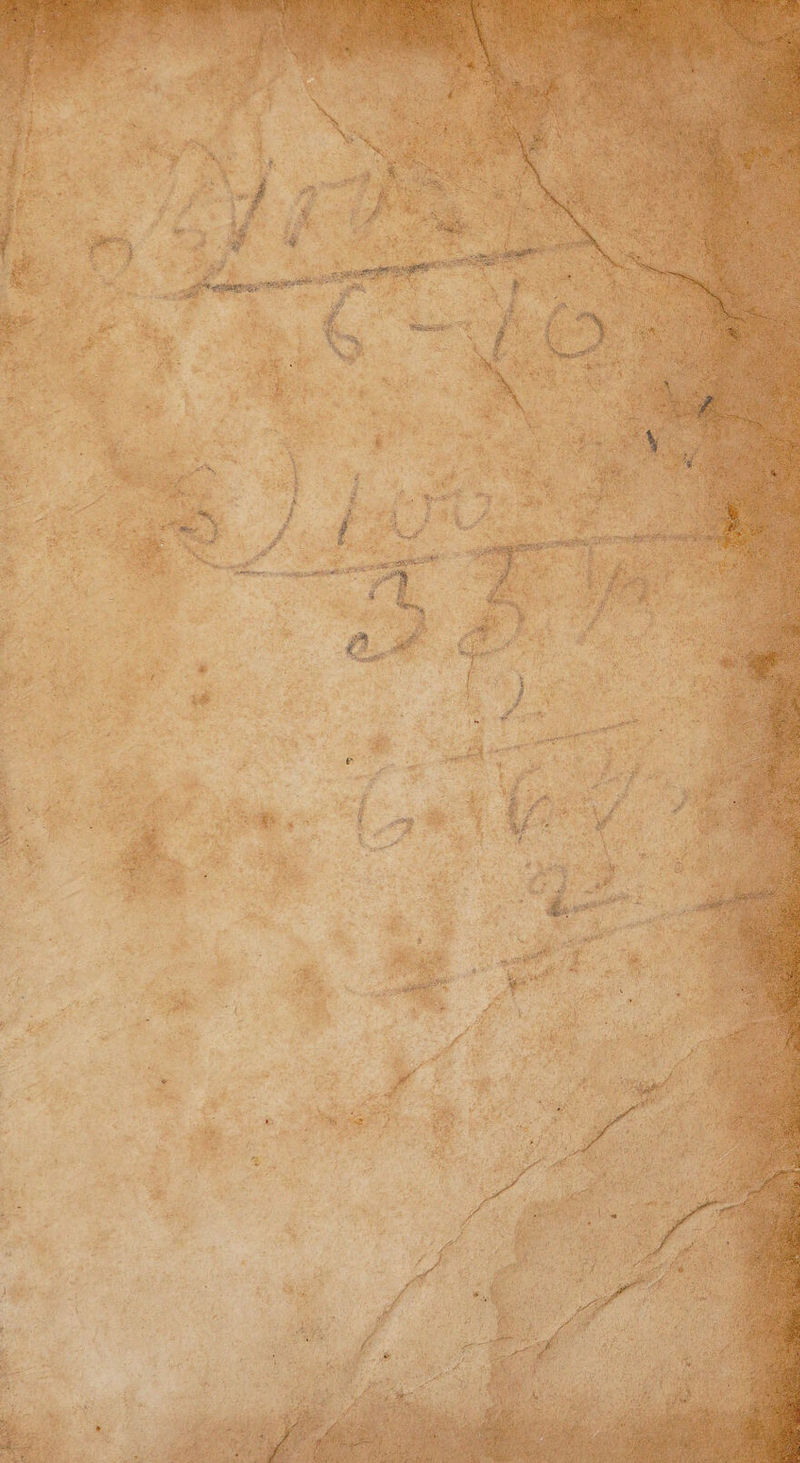 15)100
6-10
3)100
33 1/3
2
6 6 2/3
2